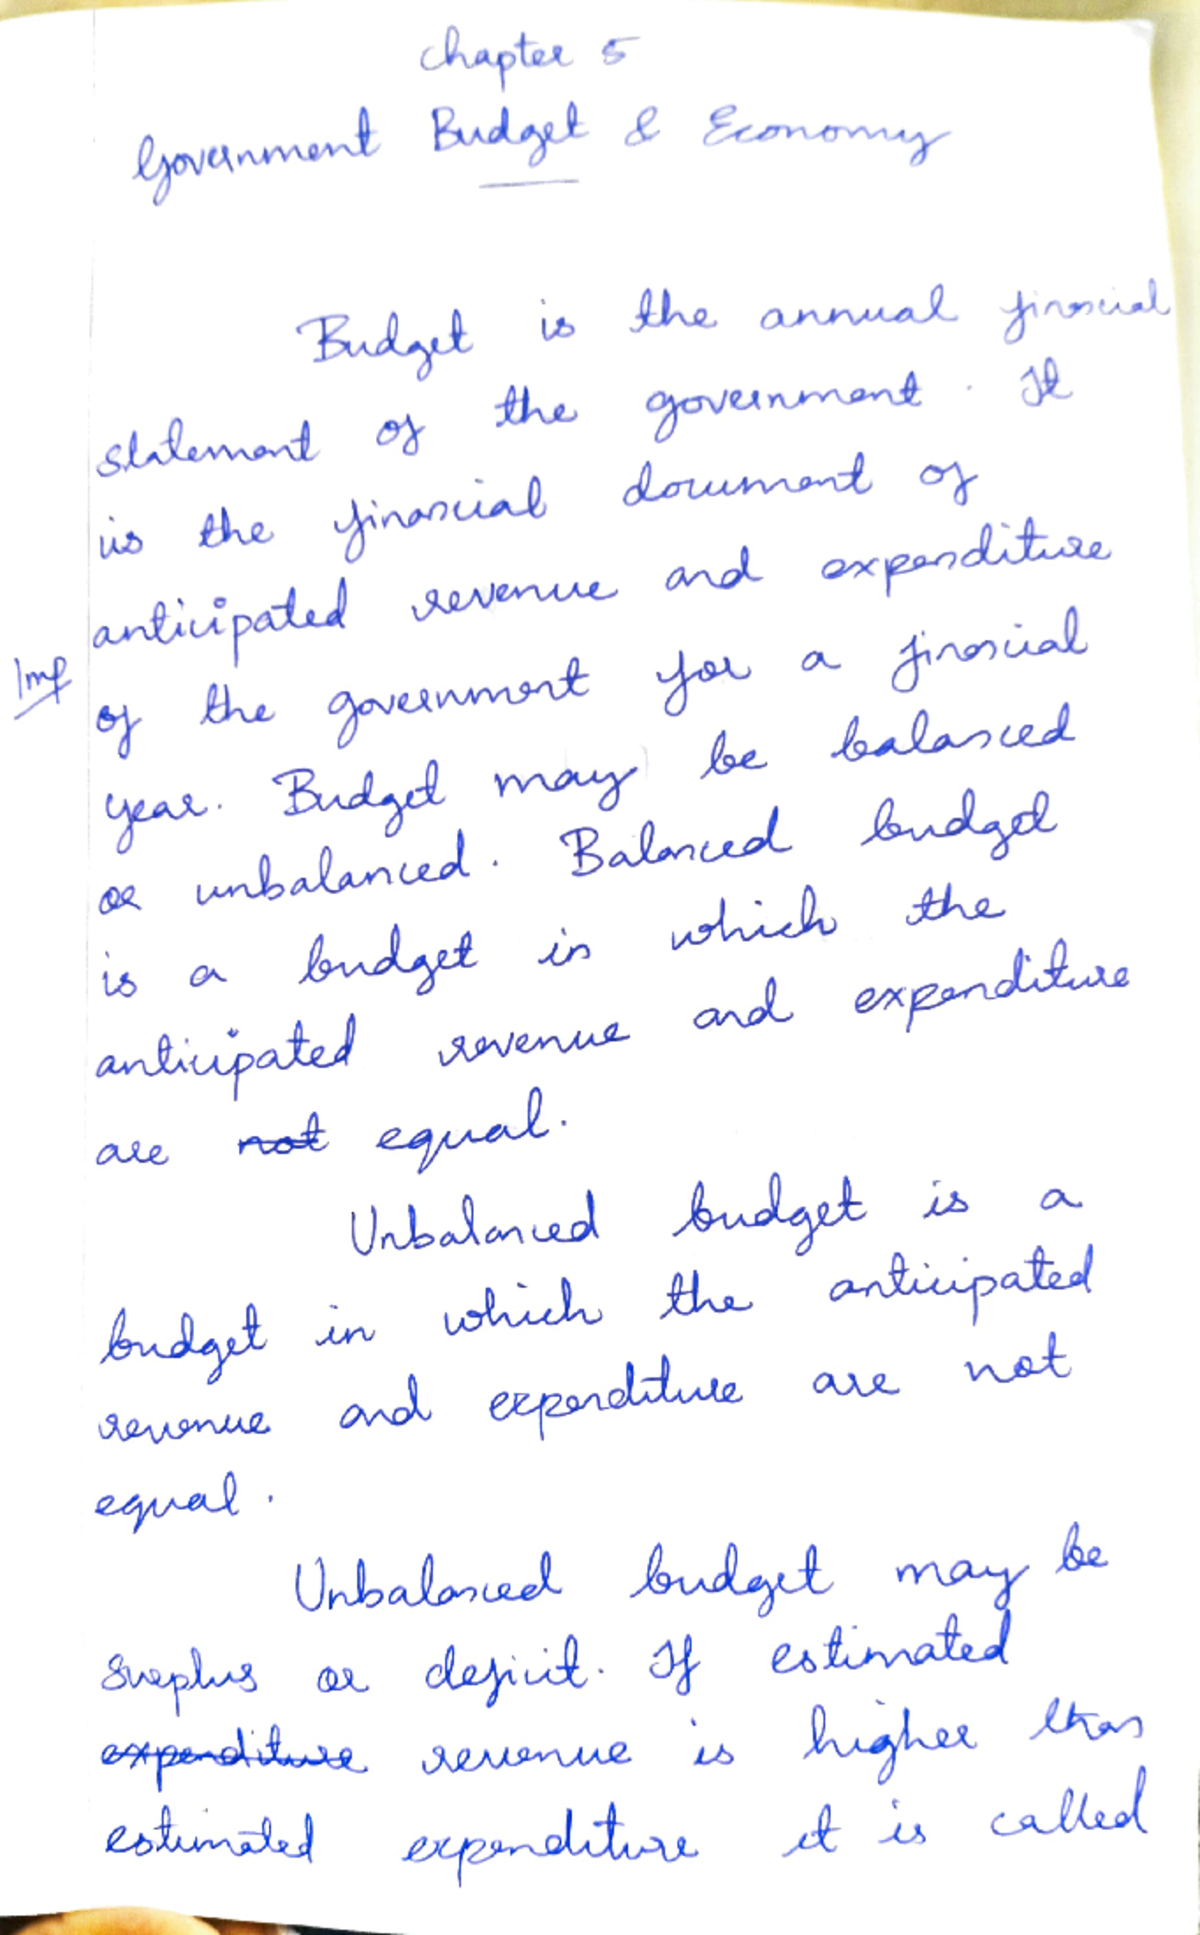 Chapter 5
Government Budget & Economy
Budget is the annual financial
statement of the government. It
is the financial document of
anticipated revenue and expenditure
Imp
of the government for a financial
year. Budget may be balanced
or unbalanced. Balanced budget
is a budget in which the
anticipated revenue and expenditure
are not equal.
Unbalanced budget is a
budget in which the anticipated
revenue and expenditure are not
equal.
Unbalanced budget may be
surplus or deficit. If estimated
expenditure revenue is higher than
estimated expenditure it is called